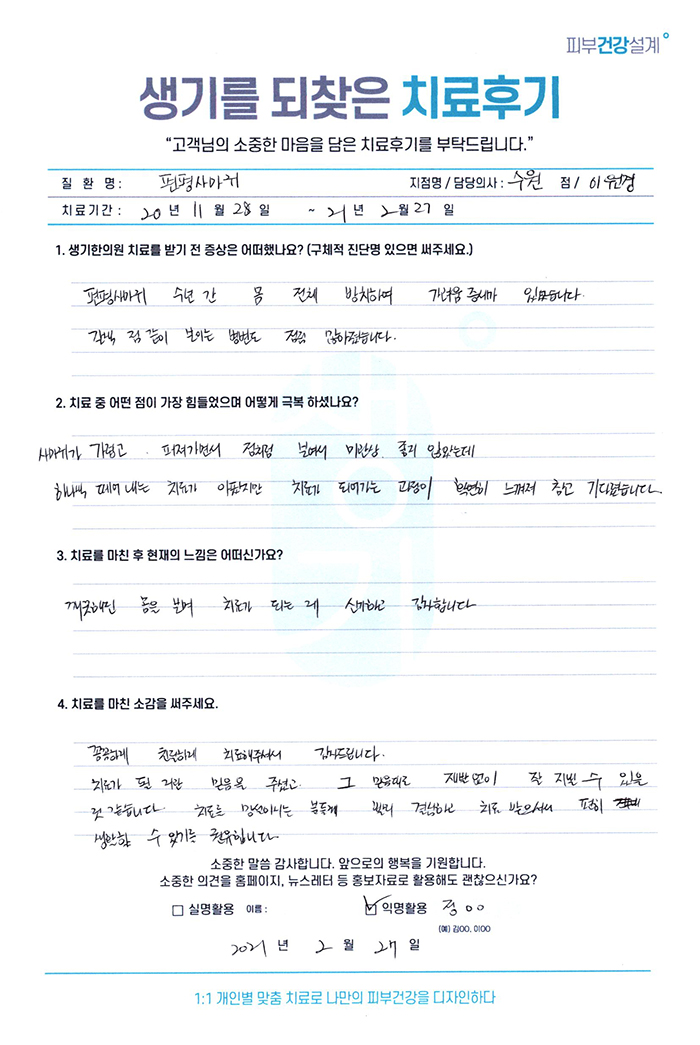 피부건강설계
생기를 되찾은 치료후기
“고객님의 소중한 마음을 담은 치료후기를 부탁드립니다.”
질 환 명 : 편평사마귀 지점명 / 담당의사 : 수원 점 / 이원경
치료기간 : 20 년 11 월 28 일 ~ 21 년 2 월 27 일
1. 생기한의원 치료를 받기 전 증상은 어떠했나요? (구체적 진단명 있으면 써주세요.)
편평사마귀 수년 간 몸 전체 방치하여 가려움 증세마 있었습니다.
각색 점 같이 보이는 병변도 점점 많아졌습니다.
2. 치료 중 어떤 점이 가장 힘들었으며 어떻게 극복 하셨나요?
사마귀가 가렵고 . 퍼져가면서 점처럼 보여서 미관상 좋지 않았는데
하나씩 떼어 내는 치료가 아팠지만 치료가 되어가는 과정이 확연히 느껴져 참고 기다렸습니다.
3. 치료를 마친 후 현재의 느낌은 어떠신가요?
깨끗해진 몸을 보며 치료가 되는 게 신기하고 감사합니다
4. 치료를 마친 소감을 써주세요.
꼼꼼하게 친절하게 치료해주셔서 감사드립니다.
치료가 될 거란 믿음을 주셨고. 그 믿음대로 재발없이 잘 지낼 수 있을
것 같습니다. 치료를 망설이시는 분들께 빨리 결심하고 치료 받으셔서 편히
생활할 수 있기를 권유합니다
소중한 말씀 감사합니다. 앞으로의 행복을 기원합니다.
소중한 의견을 홈페이지, 뉴스레터 등 홍보자료로 활용해도 괜찮으신가요?
실명활용 이름 : 익명활용 정 00
(예) 김OO, 이OO
2021 년 2 월 27 일
1:1 개인별 맞춤 치료로 나만의 피부건강을 디자인하다